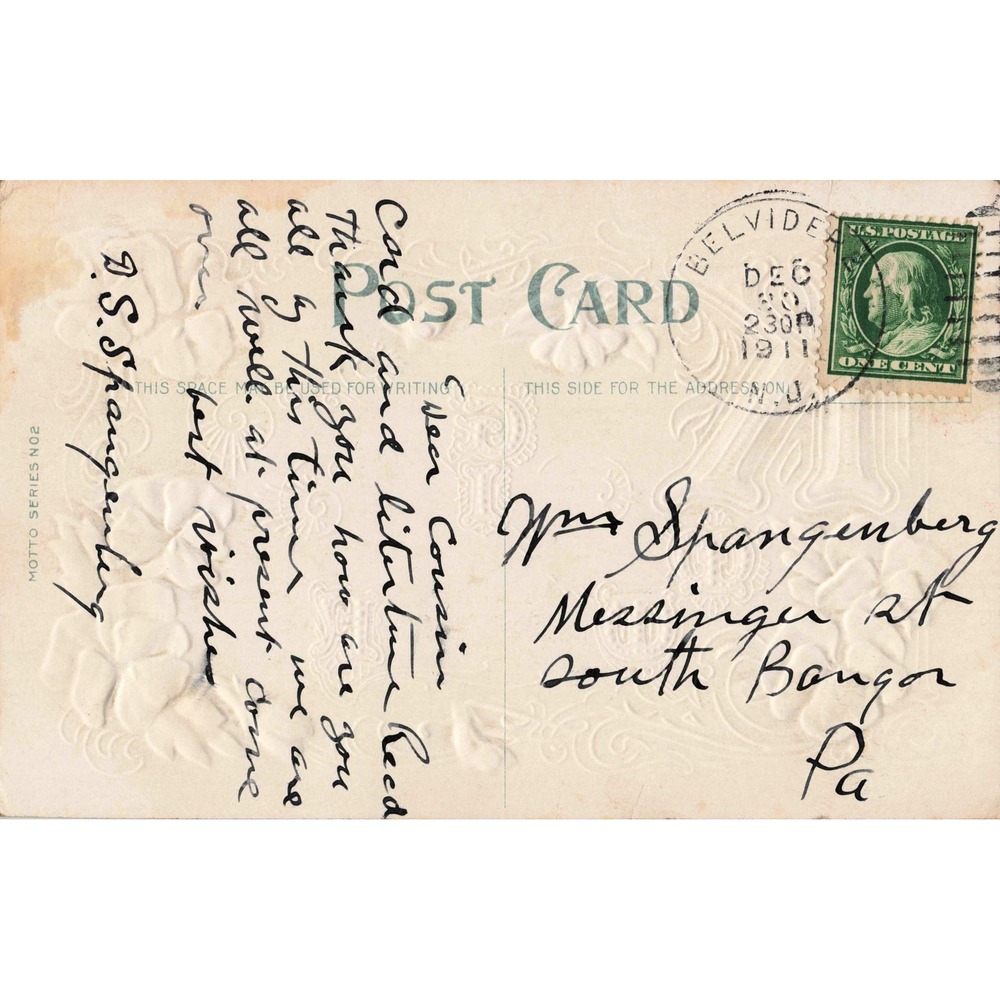 POST CARD
THIS SPACE MAY BE USED FOR WRITING
THIS SIDE FOR THE ADDRESS ON
MOTTO SERIES NO2
BELVIDERE
DEC
30
230P
1911
N.J.
U.S. POSTAGE
ONE CENT
Dear Cousin
Card and literture Recd
Thank you how are you
all by this time we are
all well at present come
over best wishes
D. S. Spangenberg
Wm Spangenberg
Messinger st
South Bangor
Pa